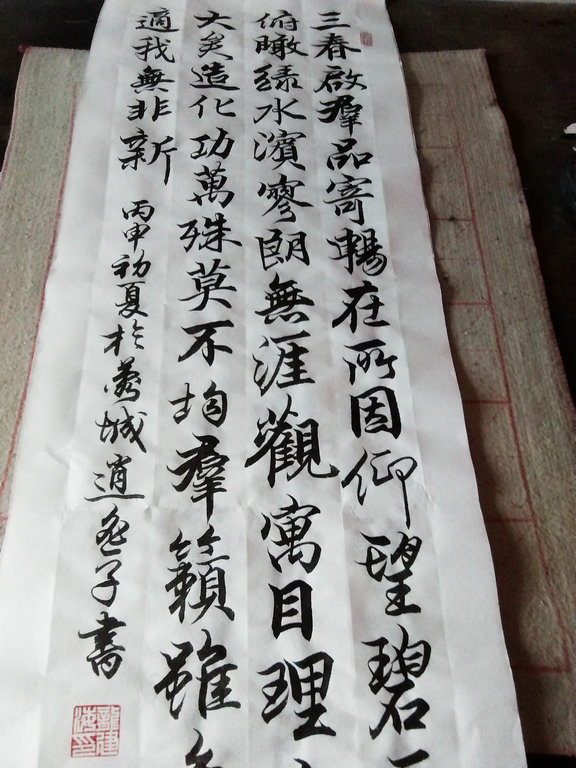 三春啟羣品寄暢在所因仰望碧天
俯瞰綠水濱寥朗無涯觀寓目理
大矣造化功萬殊莫不均羣籟雖參
適我無非新
丙申初夏於蓉城逍遙子書